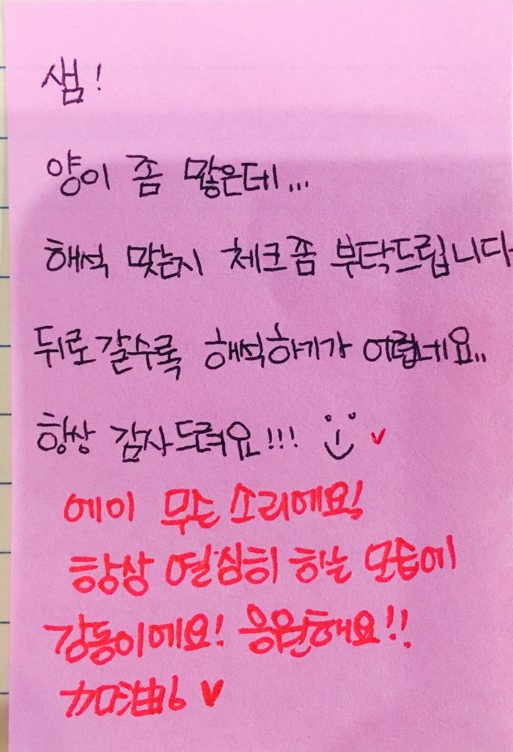 샘!
양이 좀 많은데...
해석 맞는지 체크쫌 부탁드립니다
뒤로갈수록 해석하기가 어렵네요..
항상 감사드려요!!! ♥
에이 무슨 소리에요!
항상 열심히 하는 모습에
감동이에요! 응원해요!!
加油 ♥